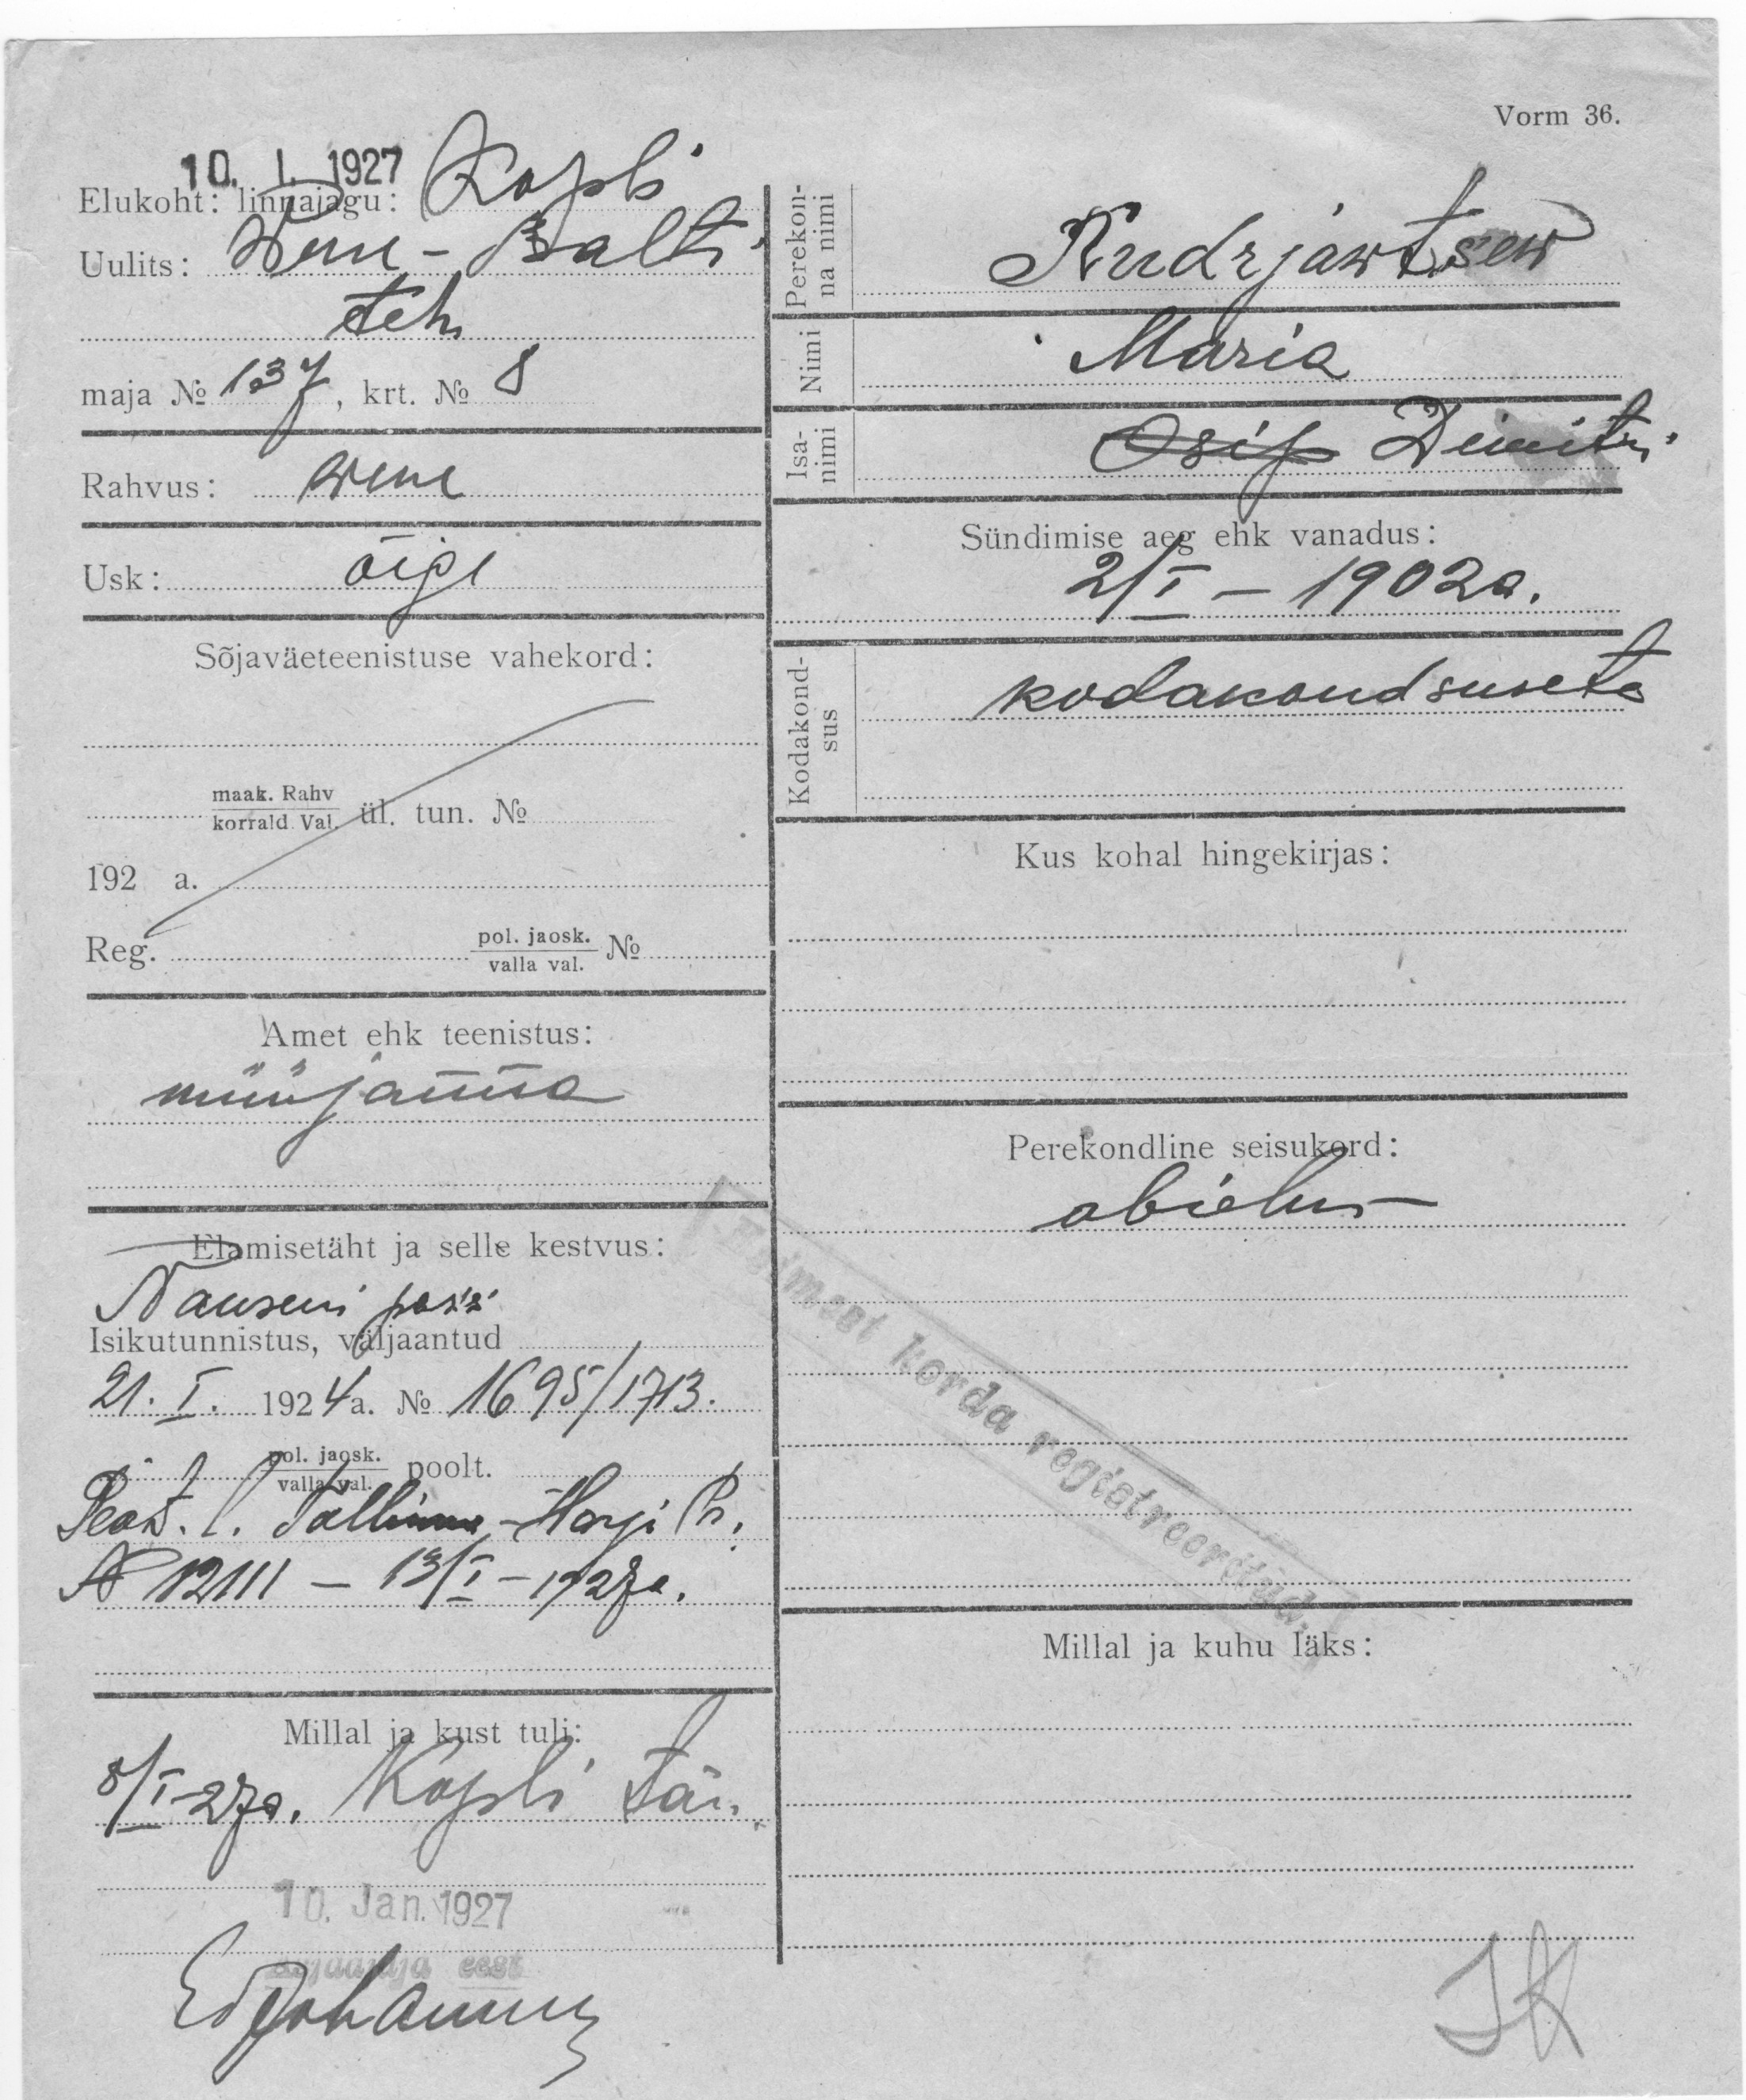 Vorm 36.
10. I. 1927
Elukoht: linnajagu: Kopli
Uulits: Wene-Balti
teh.
maja № 137, krt. № 8
Rahvus: wene
Usk: õige
Sõjaväeteenistuse vahekord:
maak. Rahv
korrald Val. ül. tun. №
192 a.
Reg. pol. jaosk. №
valla val.
Amet ehk teenistus:
müüjanna
Elamisetäht ja selle kestvus:
Nanseni pass
Isikutunnistus, väljaantud
21. I. 1924 a. № 1695/1713.
pol. jaosk. poolt.
valla val.
Tallinna-Harju Pr.
№ 12111 – 13/I – 1927a.
Millal ja kust tuli:
8/I-27a. Kopli tän.
10. Jan. 1927
asjaajaja eest
Perekonna nimi Kudrjawtsew
Nimi Maria
Isanimi Osip Dimitri
Sündimise aeg ehk vanadus:
2/I – 1902a.
Kodakondsus kodakondsuseta
Kus kohal hingekirjas:
Perekondline seisukord:
abielus
Esimest korda registreeritud.
Millal ja kuhu läks: